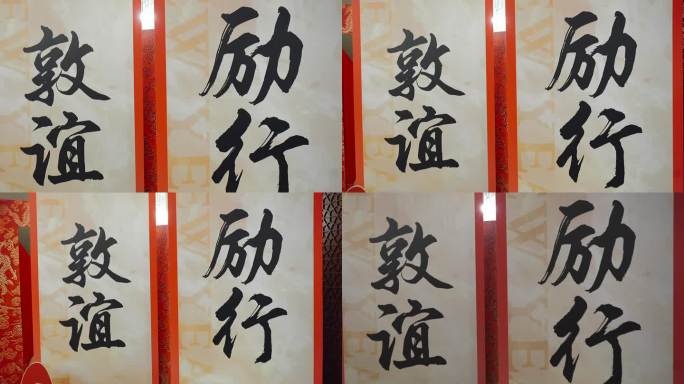 敦谊
励行
敦谊
励行
敦谊
励行
敦谊
励行